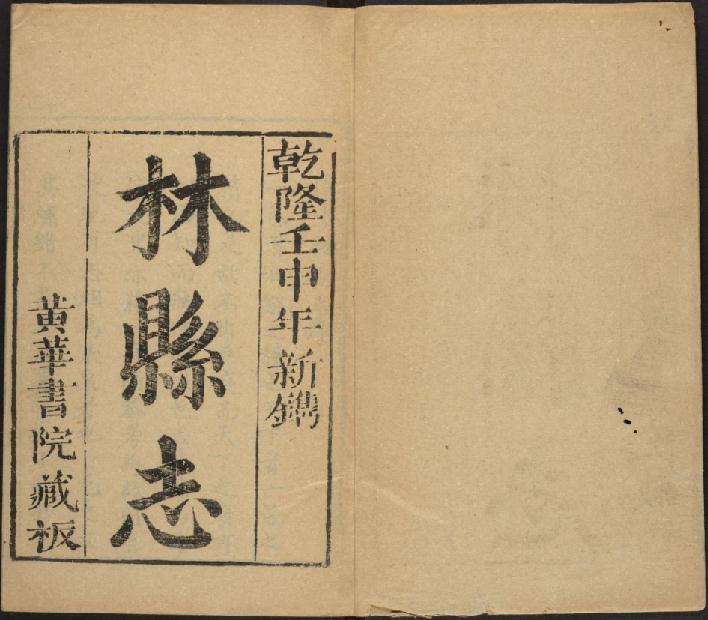 乾隆壬申年新鐫
林縣志
黄華書院藏板